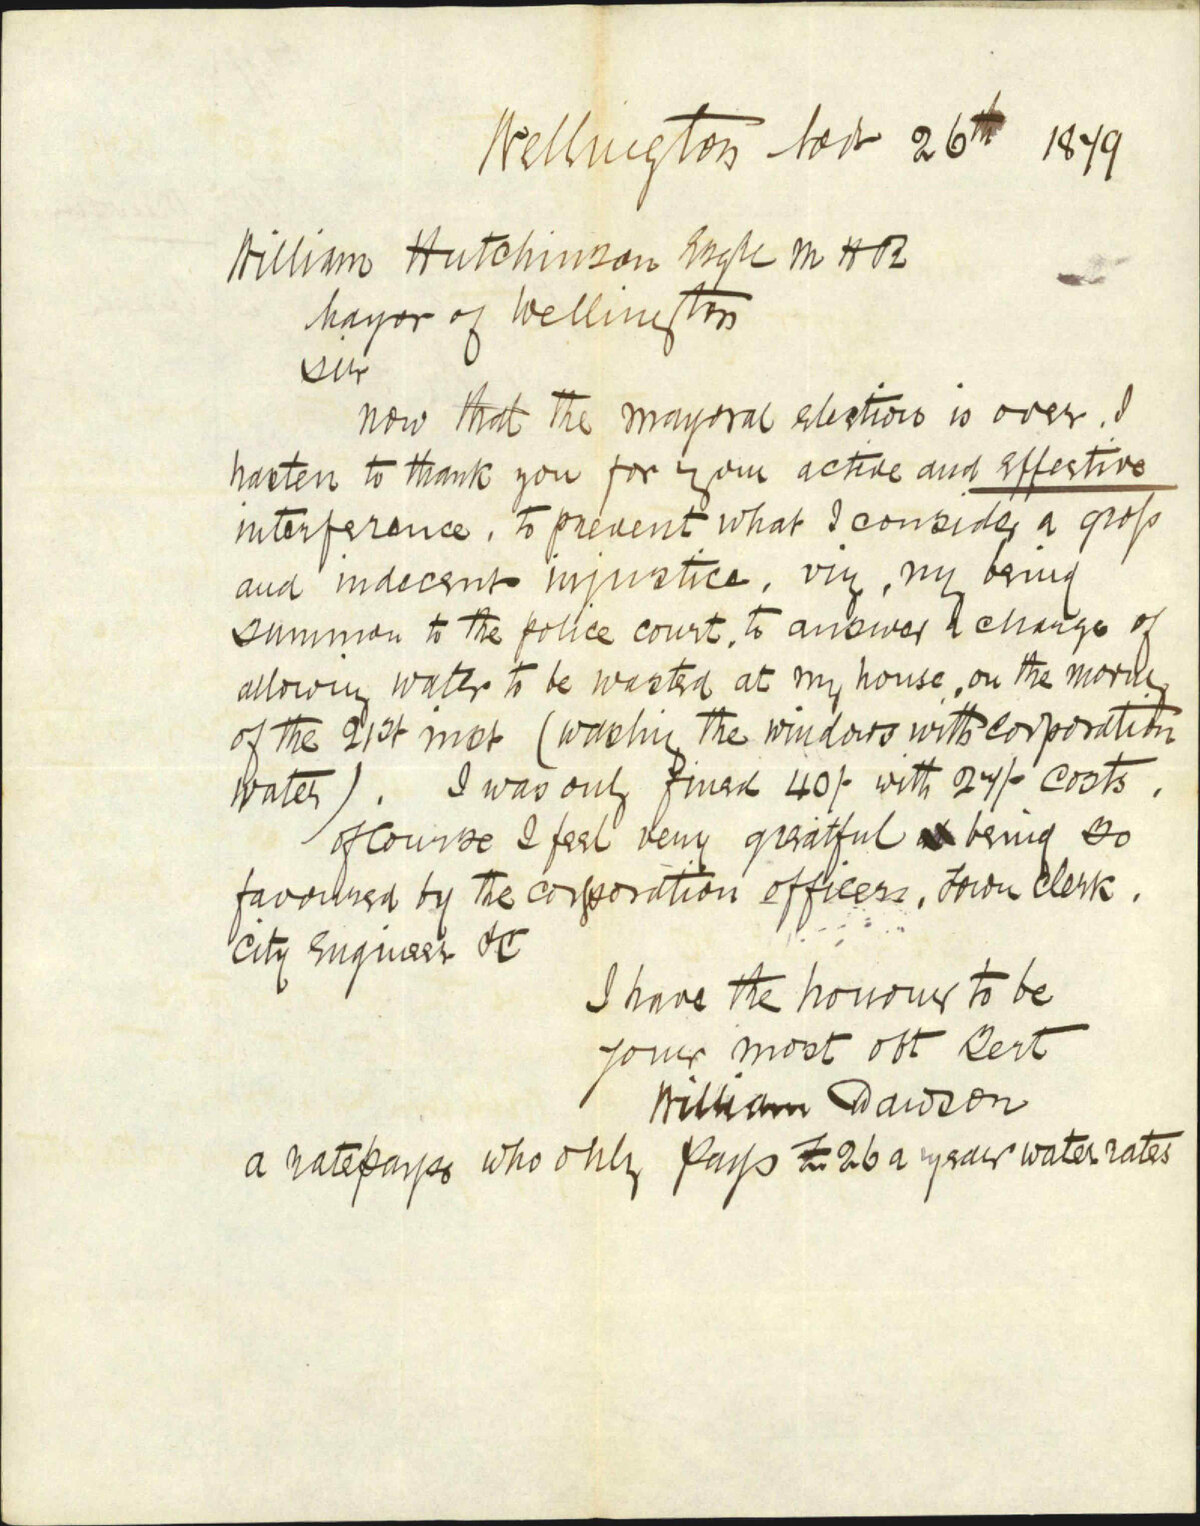 Wellington Nov 26th 1879
William Hutchinson Esqre M H R
Mayor of Wellington
Sir
Now that the mayoral election is over, I
hasten to thank you for your active and effective
interference, to prevent what I consider a gross
and indecent injustice, viz, my being
summon to the police court, to answer a charge of
allowing water to be wasted at my house, on the morning
of the 21st inst (washing the windows with corporation
water). I was only fined 40/- with 27/- costs.
Of Course I feel very greatful being so
favoured by the corporation officers, Town Clerk,
City Engineer &C
I have the honour to be
your most obt Sert
William Dawson
a ratepayer who only pays £26 a year water rates